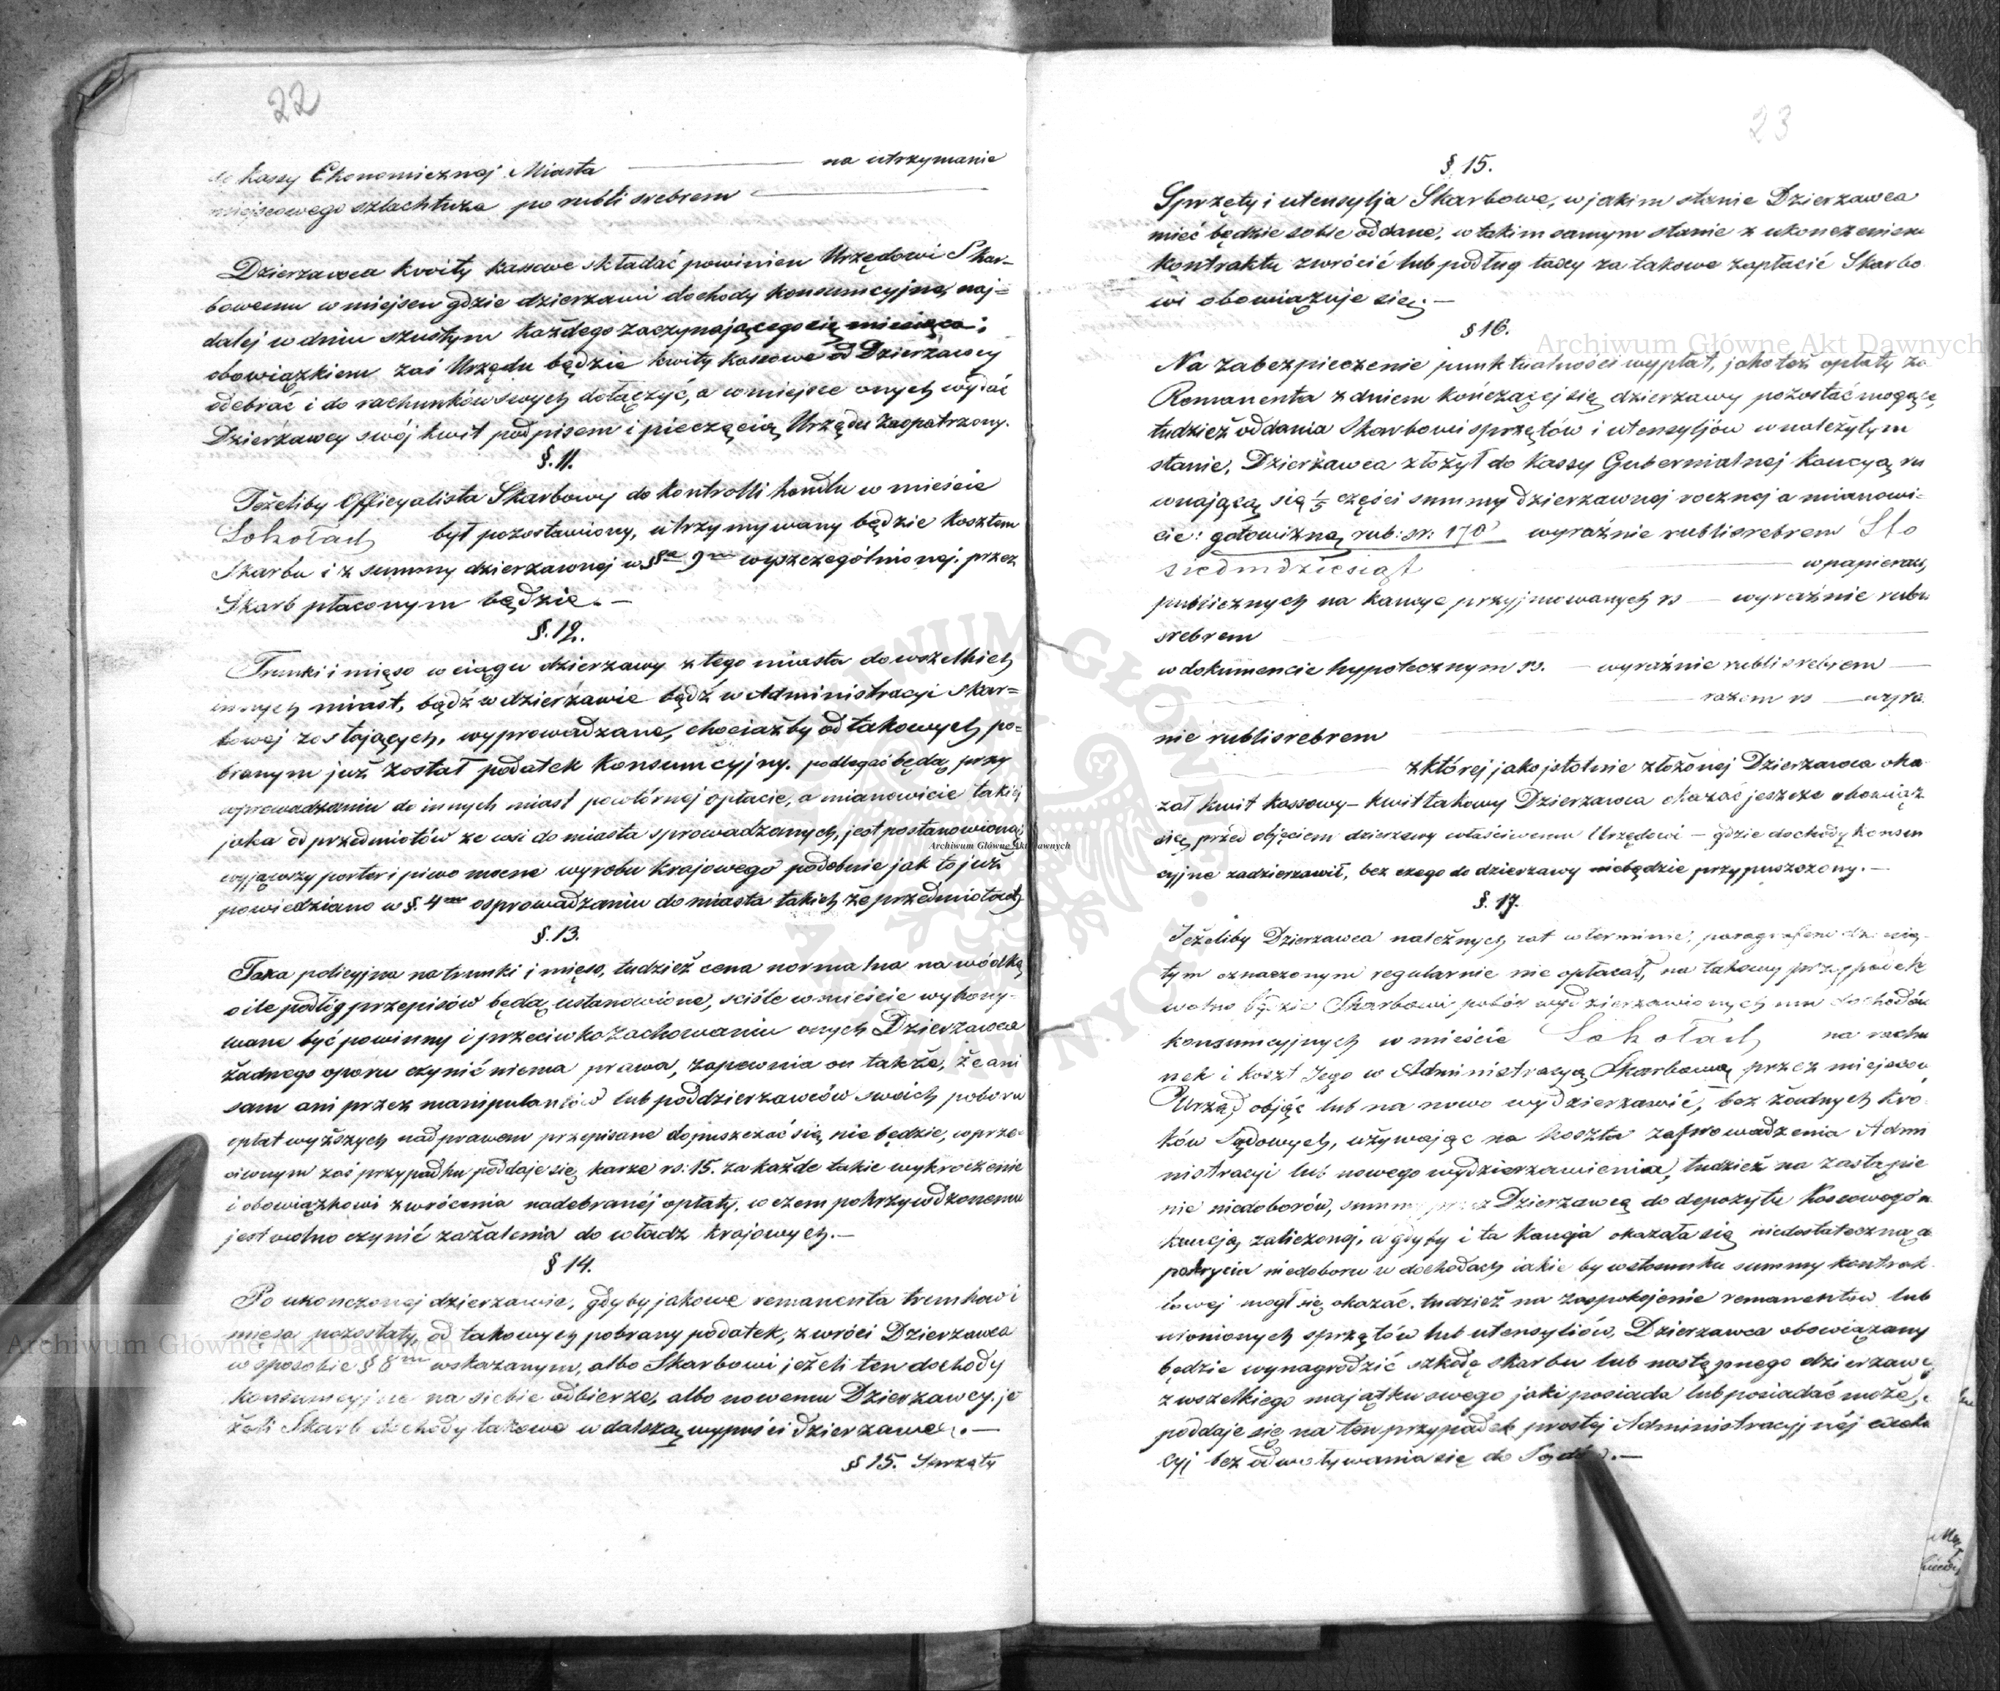 22
do Kassy Ekonomicznej Miasta ——— na utrzymanie
miejscowego szlachtuza po rubli srebrem ———
Dzierzawca kwity kassowe składać powinien Urzędowi Skar-
bowemu w miejscu gdzie dzierzawi dochody konsumcyjne, naj-
dalej w dniu szustym każdego zaczynającego się miesiąca;
obowiązkiem zaś Urzędu będzie kwity kassowe od Dzierżawcy
odebrać i do rachunków swych dołączyć, a w miejsce onych wydać
Dzierżawcy swój kwit podpisem i pieczęcią Urzędu zaopatrzony.
§. 11.
Jeżeliby Officyalista Skarbowy do kontrolli handlu w mieście
Sokołach był pozostawiony, utrzymywany będzie kosztem
Skarbu i z summy dzierzawnej w §ie 9m wyszczególnionej, przez
Skarb płaconym będzie. —
§. 12.
Trunki i mięso w ciągu dzierzawy z tego miasta do wszelkich
innych miast, bądź w dzierżawie bądź w Administracyi Skar-
bowej zostających, wyprowadzane, chociażby od takowych po-
branym już został podatek konsumcyjny, podlegać będą przy
wprowadzaniu do innych miast powtórnej opłacie, a mianowicie takiej
jaka od przedmiotów ze wsi do miasta sprowadzanych, jest postanowiona,
wyjąwszy porter i piwo mocne wyrobu krajowego podobnie jak to już
powiedziano w §. 4m o sprowadzaniu do miasta takich że przedmiotów
§. 13.
Taxa policyjna na trunki i mięso, tudzież cena normalna na wódkę,
o ile podług przepisów będą ustanowione, sciśle w mieście wykony-
wane być powinny i przeciwko zachowaniu onych Dzierzawca
żadnego oporu czynić niema prawa, zapewnia on także, że ani
sam ani przez manipulantów lub poddzierzawców swoich, poboru
opłat wyższych nad prawem przepisane dopuszczać się nie będzie, w prze-
ciwnym zaś przypadku poddaje się karze rs: 15. za każde takie wykroczenie
i obowiązkowi zwrócenia nadebranéj opłaty, w czem pokrzywdzonemu
jest wolno czynić zażalenia do władz krajowych. —
§ 14.
Po ukończonej dzierzawie, gdyby jakowe remanenta trunków i
mięsa pozostały, od takowych pobrany podatek, zwróci Dzierzawca
w sposobie § 8m wskazanym, albo Skarbowi jeżeli ten dochody
konsumcyjne na siebie odbierze, albo nowemu Dzierzawcy, je
żeli Skarb dochody takowe w dalszą wypuści dzierzawę. —
§ 15. Sprzęty
23
§ 15.
Sprzęty i utensylja Skarbowe, w jakim stanie Dzierzawca
mieć będzie sobie oddane, w takim samym stanie z ukończeniem
kontraktu zwrócić lub podług taxy za takowe zapłacić Skarbo
wi obowiązuje się. —
§ 16.
Na zabezpieczenie punktualności wypłat, jakoteż opłaty za
Remanenta z dniem kończącej się dzierzawy pozostać mogące,
tudzież oddania Skarbowi sprzętów i utensyljów w należytym
stanie, Dzierżawca złożył do Kassy Gubernialnej Kaucyą ru
wnającą się 1/5 części summy dzierzawnej rocznej a mianowi-
cie: gotowizną rub: sr: 170 wyraźnie rubli srebrem Sto
siedmdziesiąt ——— w papierach
publicznych na kaucye przyjmowanych rs — wyraźnie rubli
srebrem ———
w dokumencie hypotecznym rs. — wyraźnie rubli srebrem —
——— razem rs — wyra
nie rubli srebrem ———
——— z której jako istotnie złożonej Dzierzawca oka
zał kwit kassowy — kwit takowy Dzierzawca okazać jeszcze obowiąz
się przed objęciem dzierzawy właściwemu Urzędowi — gdzie dochody konsum
cyjne zadzierzawił, bez czego do dzierzawy niebędzie przypuszczony. —
§. 17.
Jeżeliby Dzierzawca należnych rat w terminie, paragrafem dziewią-
tym oznaczonym regularnie nie opłacał, na takowy przypadek
wolno będzie Skarbowi pobór wydzierzawionych mu dochodów
konsumcyjnych w mieście Sokołach na rachu
nek i koszt Jego w Administracyą Skarbową przez miejscowy
Urząd objąć lub na nowo wydzierzawić, bez żadnych kro-
ków Sądowych, używając na koszta zaprowadzenia Admi
nistracyi lub nowego wydzierzawienia, tudzież na zastąpie
nie niedoborów, summy przez Dzierzawcę do depozytu Kassowego
kaucją zaliczonej, a gdyby i ta kaucja okazała się niedostateczną
pokrycia niedoboru w dochodach jakie by w stosunku summy kontrak
towej mogł się okazać, tudzież na zaspokojenie remanentów lub
unionych sprzętów lub utensyliów, Dzierzawca obowiązany
będzie wynagrodzić szkodę skarbu lub następnego dzierzawcy
z wszelkiego majątku swego jaki posiada lub posiadać może,
poddaje się na ten przypadek prostej Administracyjnéj exeku
cyi bez odwoływania się do Sądów. —
Archiwum Główne Akt Dawnych